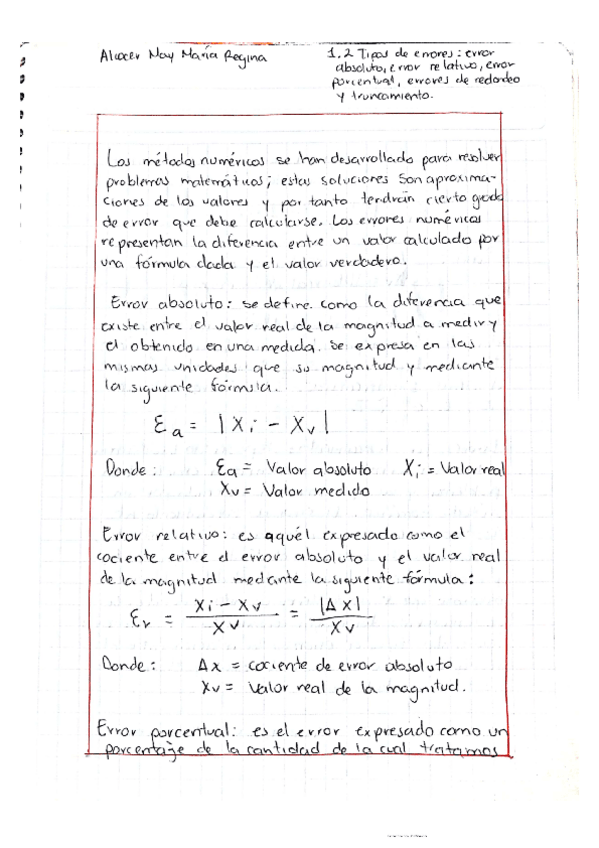 Alcocer May María Regina
1.2 Tipos de errores: error
absoluto, error relativo, error
porcentual, errores de redondeo
y truncamiento.
Los métodos numéricos se han desarrollado para resolver
problemas matemáticos; estas soluciones son aproxima-
ciones de los valores y por tanto tendrán cierto grado
de error que debe calcularse. Los errores numéricos
representan la diferencia entre un valor calculado por
una fórmula dada y el valor verdadero.
Error absoluto: se define como la diferencia que
existe entre el valor real de la magnitud a medir y
el obtenido en una medida. Se expresa en las
mismas unidades que su magnitud y mediante
la siguiente fórmula.
Ea = |Xi - Xv|
Donde: Ea = Valor absoluto Xi = Valor real
Xv = Valor medido
Error relativo: es aquél expresado como el
cociente entre el error absoluto y el valor real
de la magnitud mediante la siguiente fórmula:
Er = Xi - Xv / Xv = |Δx| / Xv
Donde: Δx = cociente de error absoluto
Xv = Valor real de la magnitud.
Error porcentual: es el error expresado como un
porcentaje de la cantidad de la cual tratamos